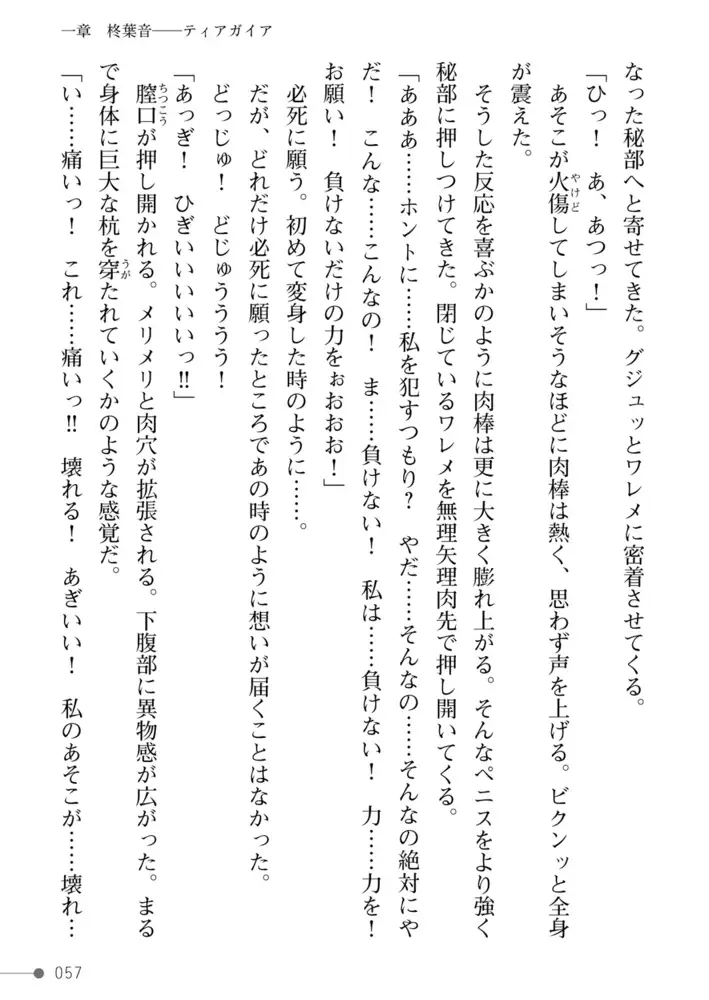 一章 柊葉音――ティアガイア
なった秘部へと寄せてきた。グジュッとワレメに密着させてくる。
「ひっ！　あ、あつっ！」
あそこが火傷してしまいそうなほどに肉棒は熱く、思わず声を上げる。ビクンッと全身
が震えた。
そうした反応を喜ぶかのように肉棒は更に大きく膨れ上がる。そんなペニスをより強く
秘部に押しつけてきた。閉じているワレメを無理矢理肉先で押し開いてくる。
「あああ……ホントに……私を犯すつもり？　やだ……そんなの……そんなの絶対にや
だ！　こんな……こんなの！　ま……負けない！　私は……負けない！　力……力を！
お願い！　負けないだけの力をぉおおお！」
必死に願う。初めて変身した時のように……。
だが、どれだけ必死に願ったところであの時のように想いが届くことはなかった。
どっじゅ！　どじゅうううう！
「あっぎ！　ひぎいいいいいっ‼」
膣口が押し開かれる。メリメリと肉穴が拡張される。下腹部に異物感が広がった。まる
で身体に巨大な杭を穿たれていくかのような感覚だ。
「い……痛いっ！　これ……痛いっ‼　壊れる！　あぎいい！　私のあそこが……壊れ…
057